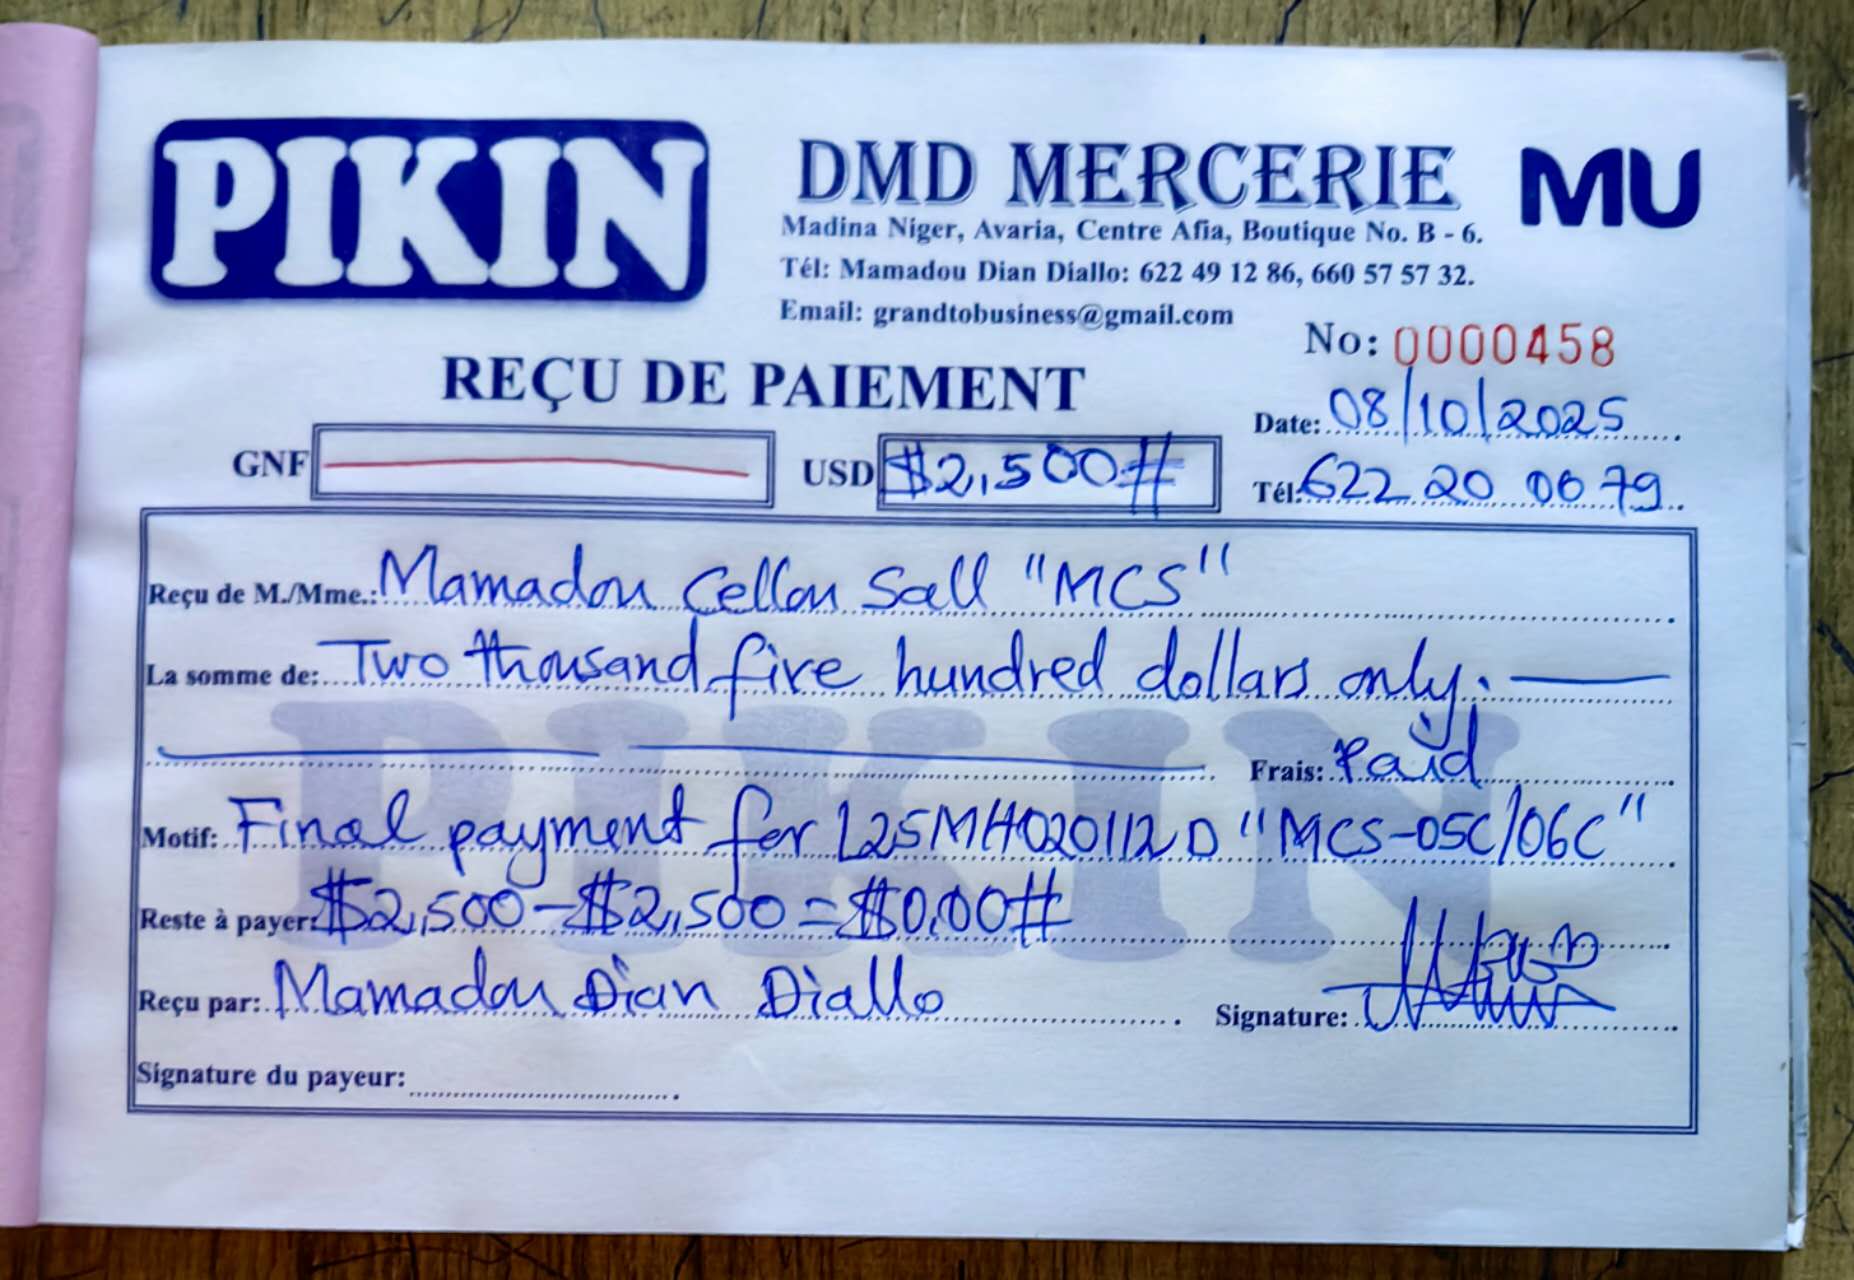 PIKIN
DMD MERCERIE
MU
Madina Niger, Avaria, Centre Afia, Boutique No. B - 6.
Tél: Mamadou Dian Diallo: 622 49 12 86, 660 57 57 32.
Email: grandtobusiness@gmail.com
No: 0000458
REÇU DE PAIEMENT
Date: 08/10/2025
GNF
USD $2,500#
Tél: 622 20 00 79
Reçu de M./Mme.: Mamadou Cellou Sall "MCS"
La somme de: Two thousand five hundred dollars only.
Frais: Paid
Motif: Final payment for L25MH020112D "MCS-05C/06C"
Reste à payer: $2,500-$2,500=$0.00#
Reçu par: Mamadou Dian Diallo
Signature:
Signature du payeur:
PIKIN